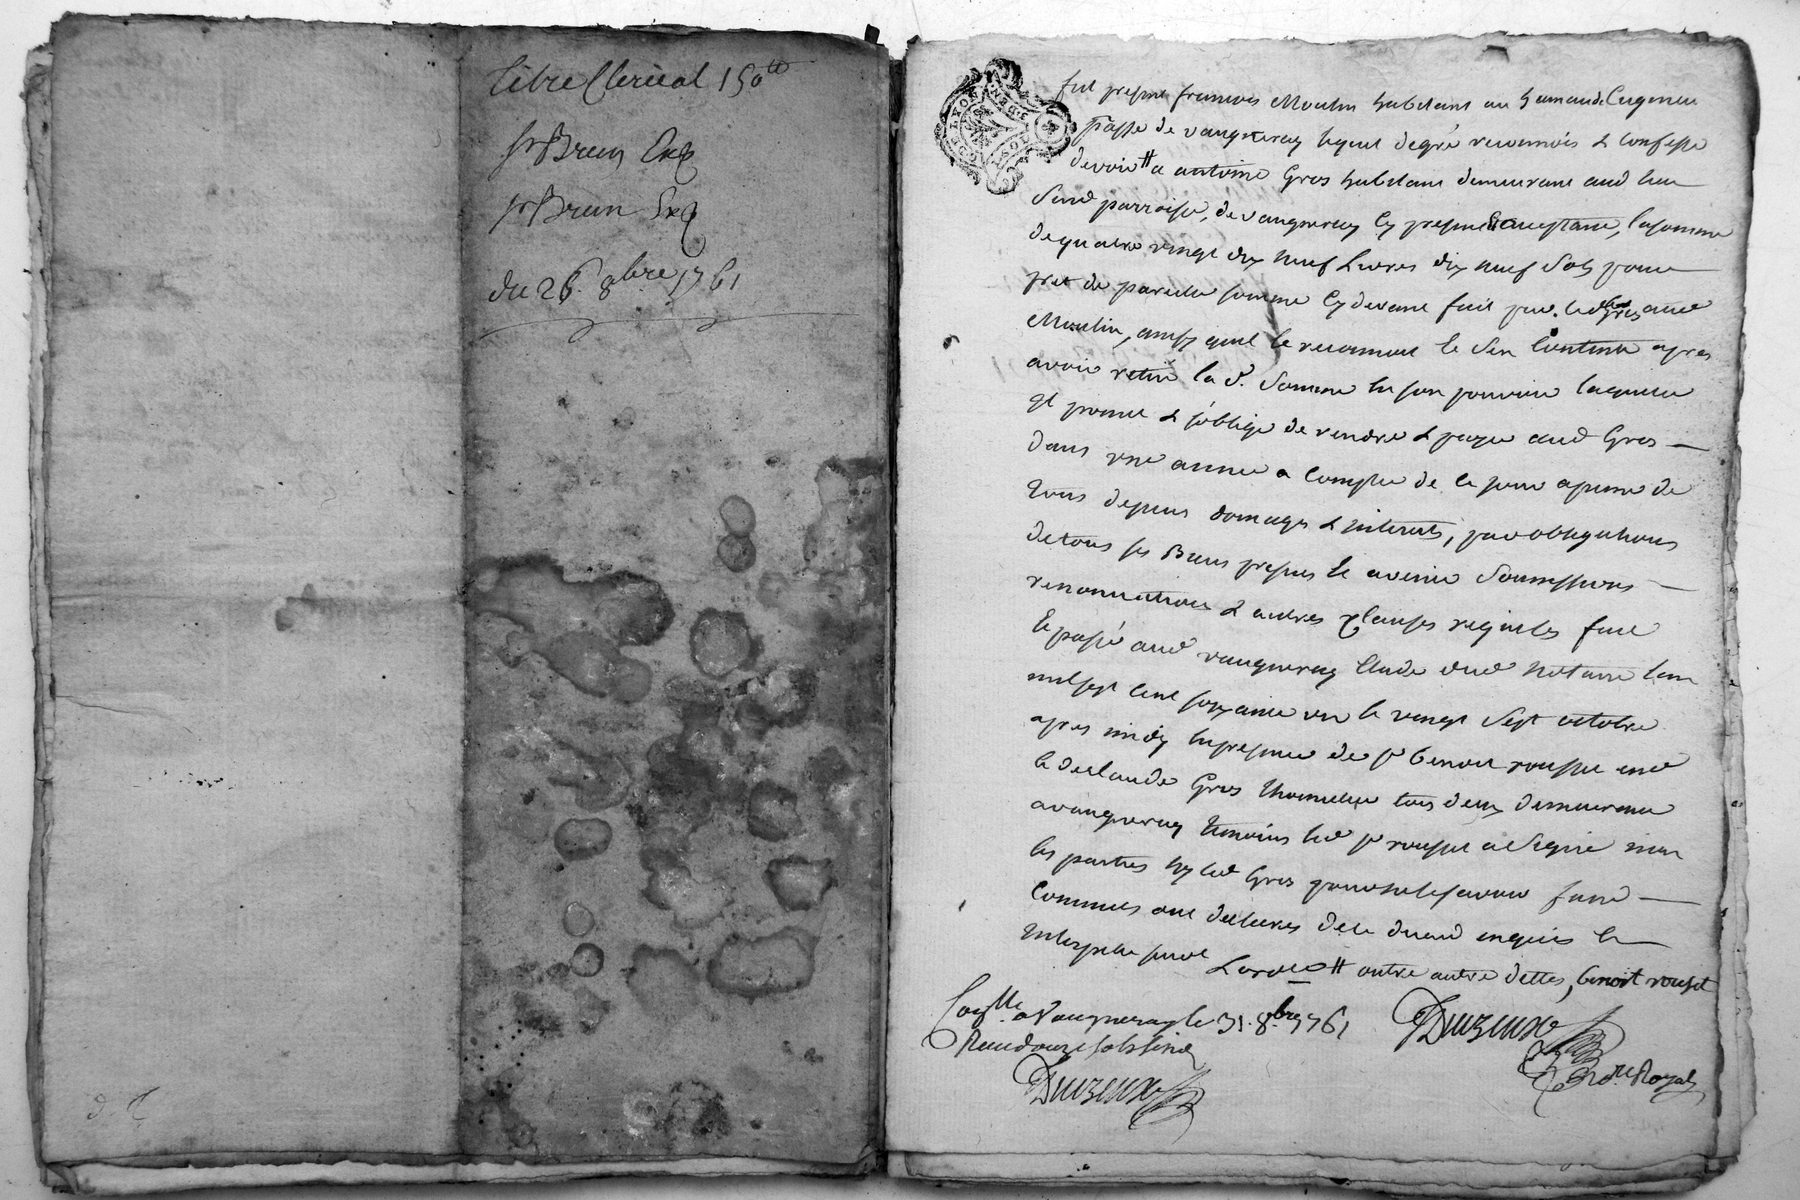 titre Clerical 150 ᵗᵗ
Sr Brun
Sr Brun
du 26. 8bre 1761
G. DE LYON
fut present francois Moulin habitant au hameau de
Passe de vaugneray lequel de gré reconnois & confesse
devoir a antoine Gros habitant demeurant aud lieu
Susd parroisse, de vaugneray cy present acceptant, la somme
de quatre vingt dix neuf Livres dix neuf Sols pour
pret de pareille somme cy devant fait par led Gros aud
Moulin, ainsy quil le reconnoit le den contenu apres
avoir retiré la d. Somme en son pouvoir laquelle
Il promet & s'oblige de rendre & payer aud Gros
dans une année a compter de ce jour a peine de
tous depens domages & interets, par obligations
de tous ses Biens presens et avenir Soumissions
renonciations & autres clauses requises fait
Et passé aud vaugneray Etude dud Notaire l'an
mil sept cent soixante un le vingt Sept octobre
apres midy En presence de sr benoit rouset
de claude Gros tous deux demeurant
a vaugneray temoins led sr rouset a Signé non
les parties ny led Gros pour ne le scavoir
comme ont declaré de ce duement enquis et
Interpellé outre autre dettes, benoit rouset
Conllé a Vaugneray le 31. 8bre 1761 Duzeux
Reçu douze sols Nore Royal
Duzeux